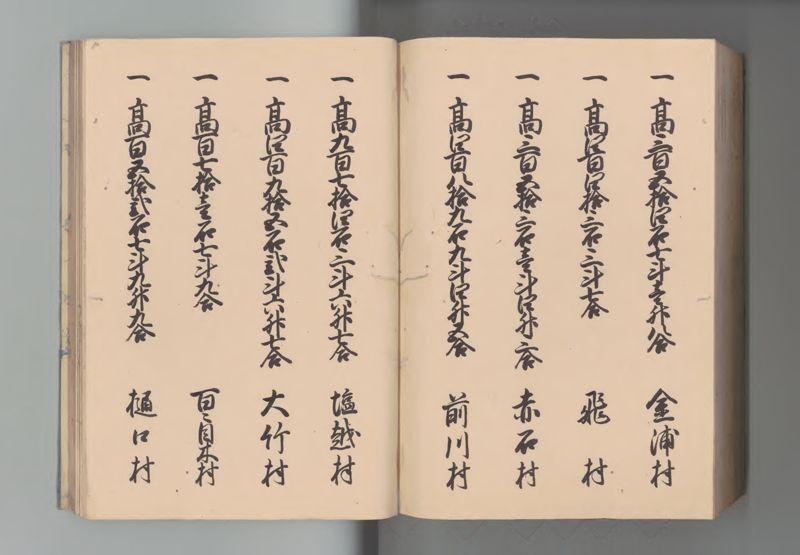 一 髙三百五拾四石七斗壱升八合 金浦村
一 髙四百四拾三石三斗七合 飛村
一 髙三百五拾三石壱斗四升三合 赤石村
一 髙四百八拾九石九斗四升五合 前川村
一 髙九百七拾四石三斗六升七合 塩越村
一 髙四百九拾五石弐斗六升七合 大竹村
一 髙百七拾壱石七斗九合 百目木村
一 髙百五拾弐石七斗九升九合 樋口村